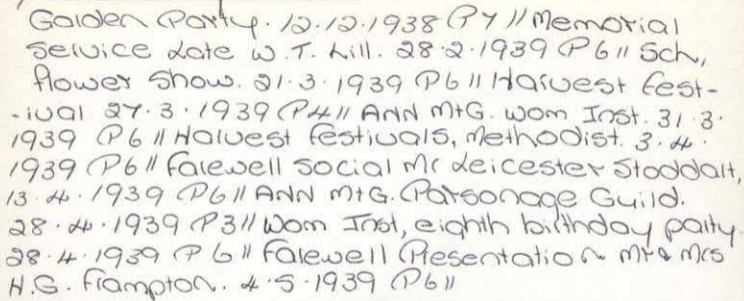 Garden Party. 12.12.1938 P7 // Memorial
Service Late W. T. Hill. 28.2.1939 P6 // Sch,
flower Show. 21.3.1939 P6 // Harvest fest-
-ival 27.3.1939 P4 // ANN MtG. Wom Inst. 31.3.
1939 P6 // Harvest festivals, Methodist. 3.4.
1939 P6 // Farewell Social Mr Leicester Stoddart,
13.4.1939 P6 // ANN MtG. Parsonage Guild.
28.4.1939 P3 // Wom Inst, eighth birthday party.
28.4.1939 P6 // Farewell Presentation Mr & Mrs
H.G. Frampton. 4.5.1939 P6 //